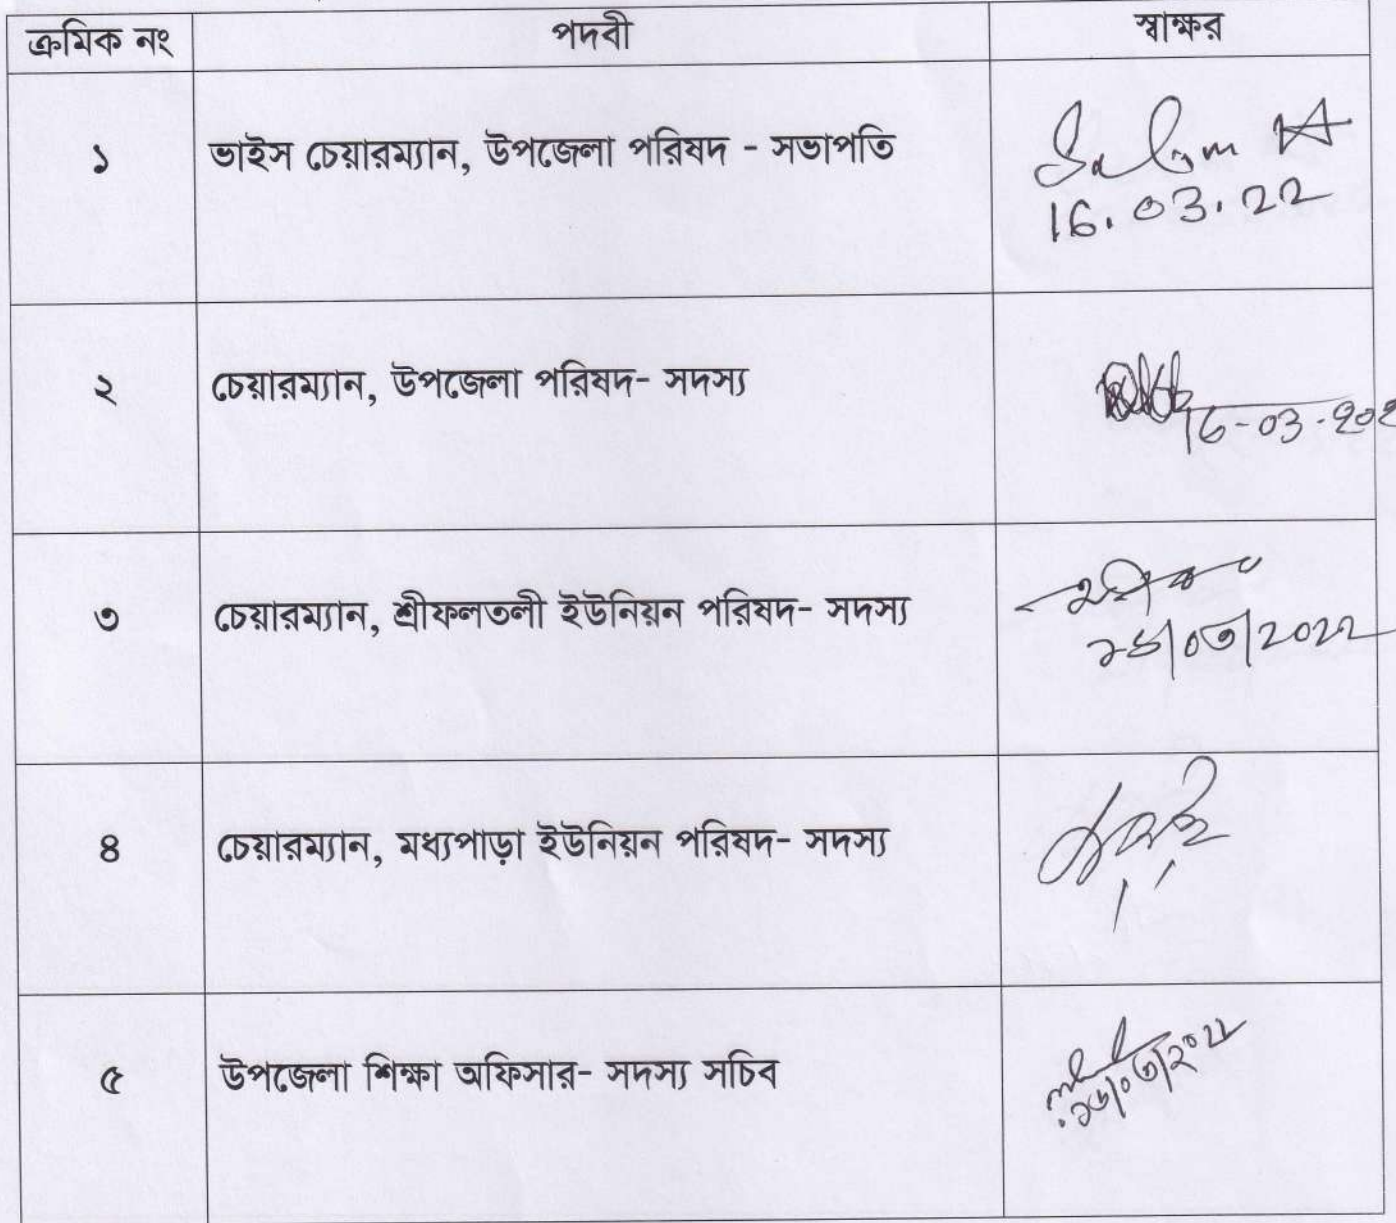 ক্রমিক নং পদবী স্বাক্ষর
১ ভাইস চেয়ারম্যান, উপজেলা পরিষদ - সভাপতি
16.03.22
২ চেয়ারম্যান, উপজেলা পরিষদ- সদস্য
16-03-202
৩ চেয়ারম্যান, শ্রীফলতলী ইউনিয়ন পরিষদ- সদস্য
১৬/০৩/2022
৪ চেয়ারম্যান, মধ্যপাড়া ইউনিয়ন পরিষদ- সদস্য
৫ উপজেলা শিক্ষা অফিসার- সদস্য সচিব
১৬/০৩/২০২২